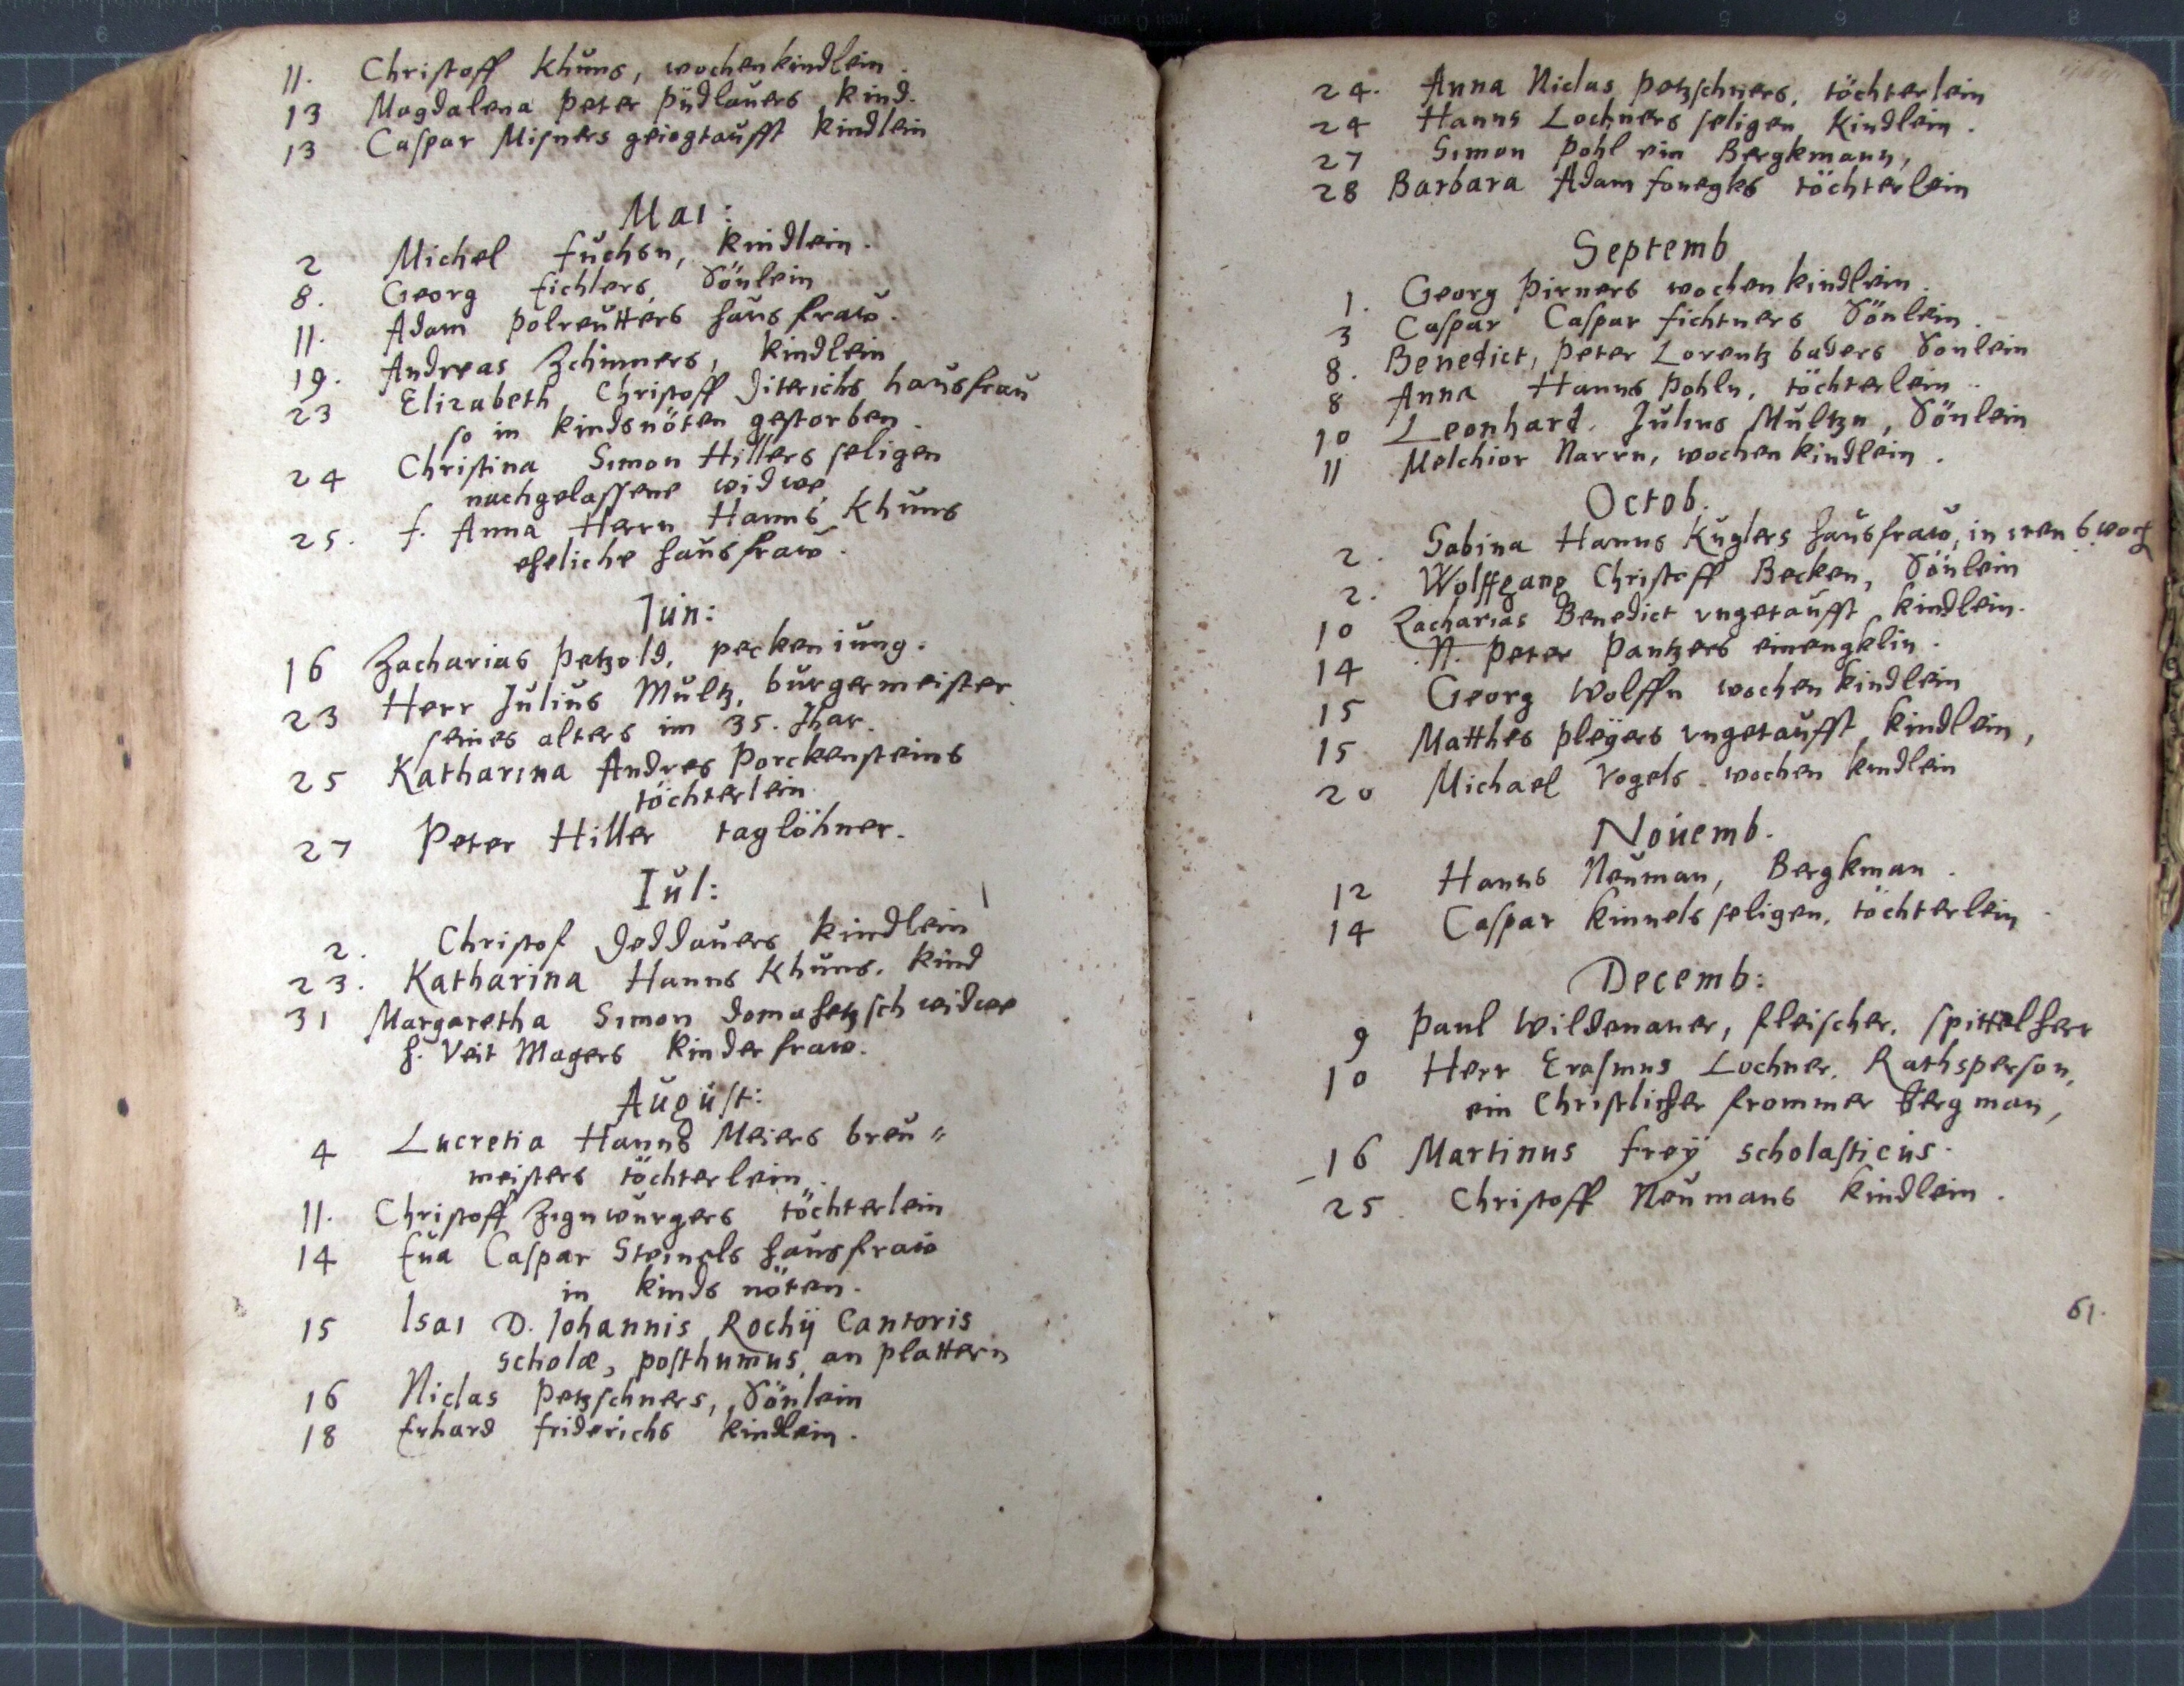 11. Christoff Khuns, wochenkindlein.
13 Magdalena Peter Püdlauers kind.
13 Caspar Misners geiogtaufft kindlein
Mai:
2 Michel Fuchsn, kindlein.
8. Georg Fichlers Sönlein
11. Adam Polreutters hausfraw.
19. Andreas Zchimmers, kindlein
23 Elizabeth Christoff Diterichs hausfrau
so in kindsnöten gestorben.
24 Christina Simon Hillers seligen
nachgelassene widwe
25. f. Anna Herrn Hanns Khuns
eheliche hausfraw.
Iun:
16 Zacharias Petzold, peckeniung.
23 Herr Julius Multz, burgermeister
seines alters im 35. Jhar.
25 Katharina Andres Porckensteins
töchterlein
27 Peter Hiller taglöhner.
Iul:
2. Christof Deddauers kindlein
23. Katharina Hanns Khuns. kind
31 Margaretha Simon domahetzsch widwe
h. Veit Magers kinderfraw.
August:
4 Lucretia Hanns Meiers breu=
meisters töchterlein.
11. Christoff Zignwürgers töchterlein
14 Eua Caspar Steinels hausfraw
in kinds nöten.
15 Isai D. Iohannis Rochij Cantoris
scholæ, posthumus, an plattern
16 Niclas Petzschners, Sönlein
18 Erhard Friderichs kindlein.
24. Anna Niclas Petzschners, töchterlein
24 Hanns Lochners seligen kindlein.
27 Simon Pohl ein Bergkmann,
28 Barbara Adam Fonegks töchterlein
Septemb
1. Georg Pirners wochenkindlein.
3 Caspar Caspar Fichtners Sönlein.
8. Benedict, Peter Lorentz baders Sonlein
8 Anna Hanns Pohln, töchterlein.
10 Leonhard. Julius Multzn, Sönlein
11 Melchior Narrn, wochenkindlein.
Octob.
2. Sabina Hanns Kuglers hausfraw, in iren 6 woch
2. Wolffgang Christoff Becken, Sönlein
10 Zacharias Benedict vngetaufft kindlein.
14 .N. Peter Pantzers einengklin.
15 Georg Wolffn wochenkindlein
15 Matthes pleÿers vngetaufft kindlein,
20 Michael Vogels wochen kindlein
Nouemb.
12 Hanns Neuman, Bergkman.
14 Caspar kinnels seligen, töchterlein
Decemb:
9 Paul Wildenauer, fleischer. spittelherr
10 Herr Erasmus Lochner. Rathsperson,
ein Christlicher frommer Bergman,
16 Martinus Freÿ scholasticus.
25. Christoff Neumans kindlein.
61.